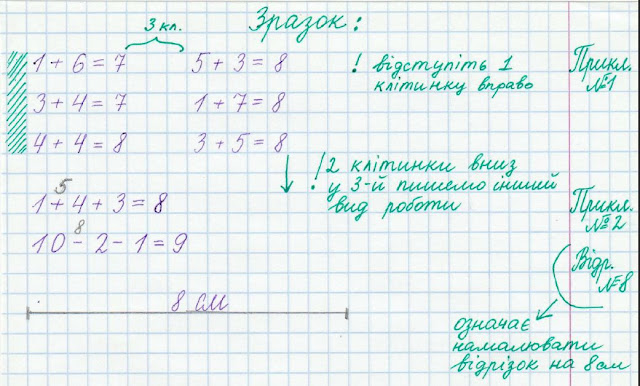 3 кл. Зразок:
1 + 6 = 7 5 + 3 = 8 ! відступіть 1 Прикл.
клітинку вправо №1
3 + 4 = 7 1 + 7 = 8
4 + 4 = 8 3 + 5 = 8
! 2 клітинки вниз
у 3-й пишемо інший
вид роботи
5
1 + 4 + 3 = 8 Прикл.
№2
8
10 - 2 - 1 = 9
Відр.
№8
8 см
означає
намалювати
відрізок на 8 см